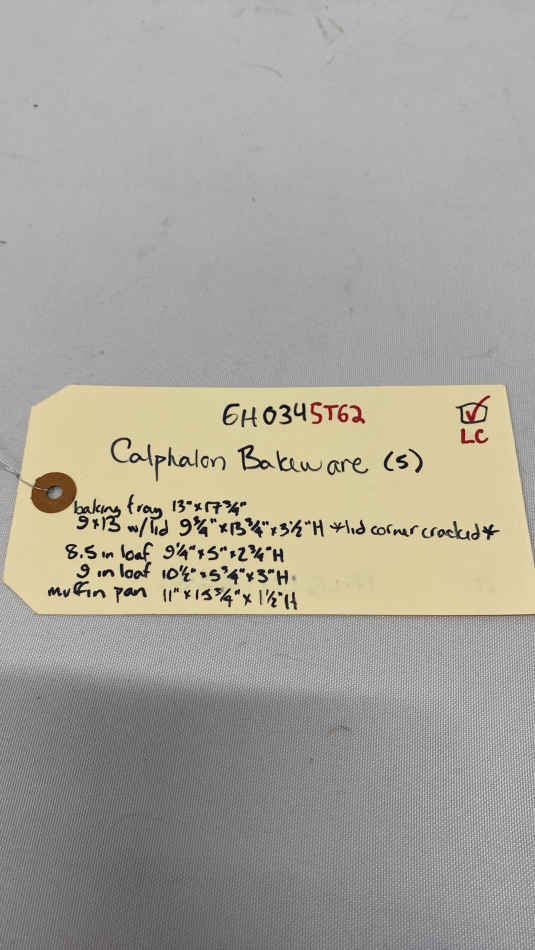 6H0345T62
LC
Calphalon Bakeware (5)
baking tray 13"x17¾"
9x13 w/lid 9¾"x13¾"x3½"H *lid corner cracked*
8.5 in loaf 9¼"x5"x2¾"H
9 in loaf 10½"x5¾"x3"H
muffin pan 11"x15¾"x1½"H